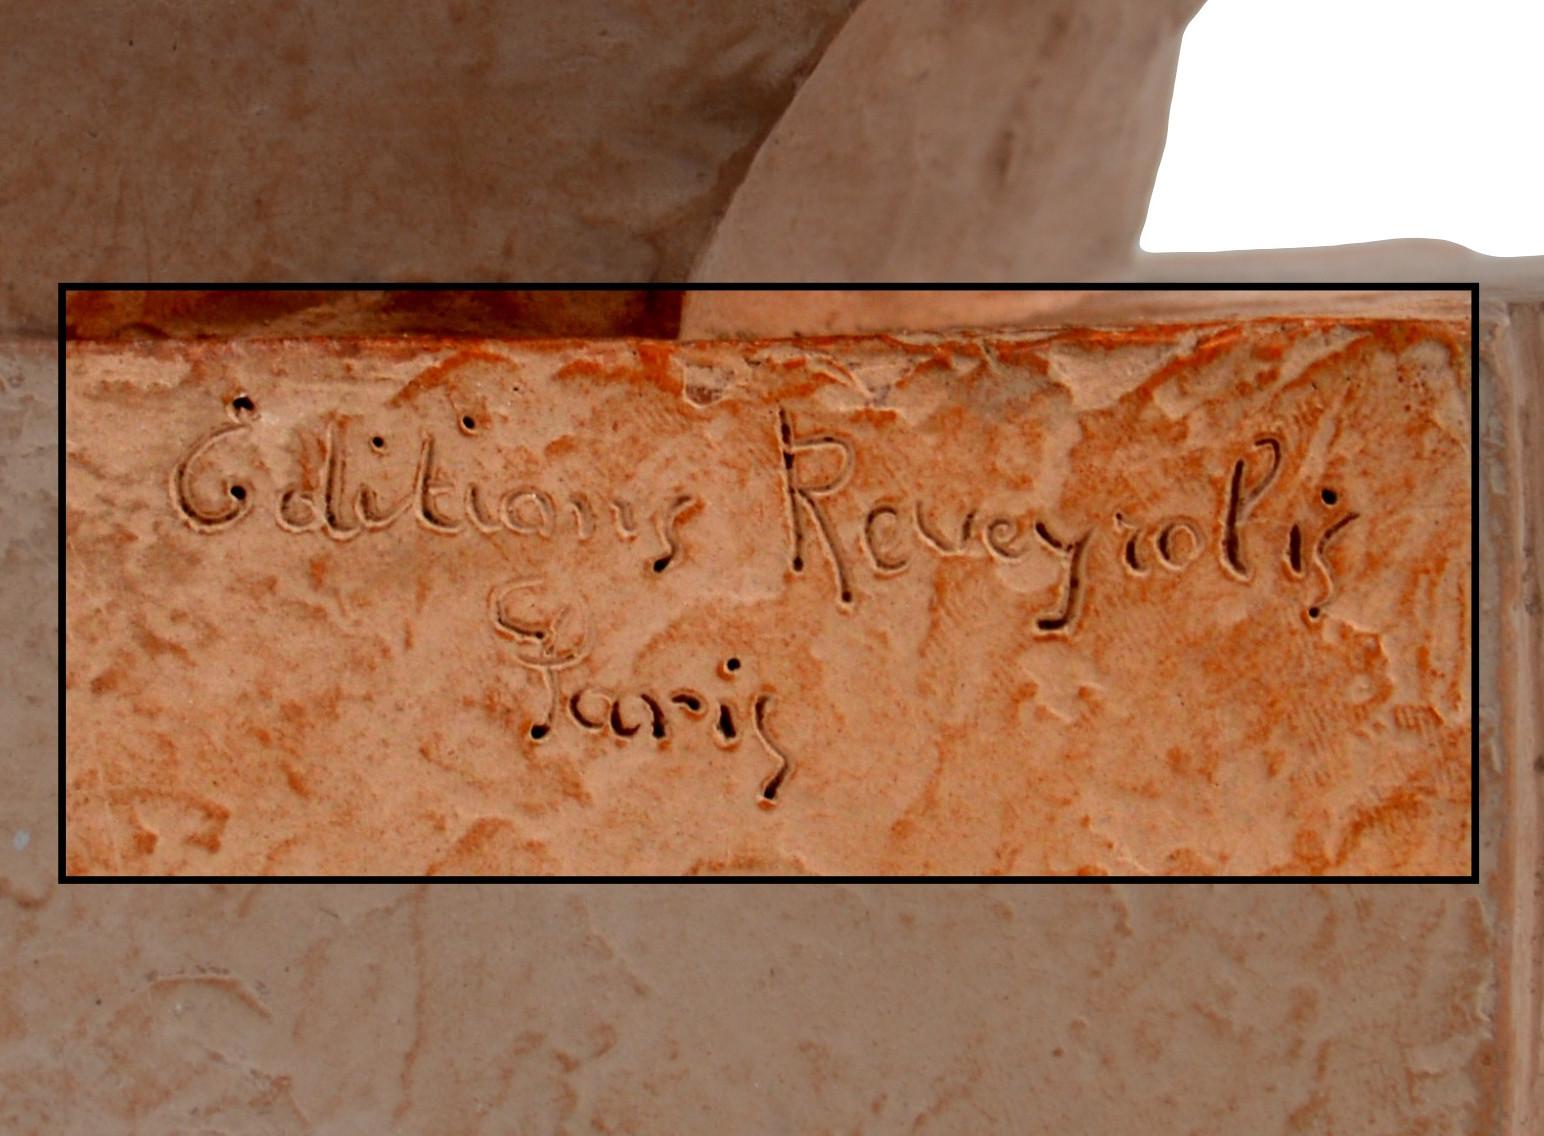 Editions Reveyrolis
Paris